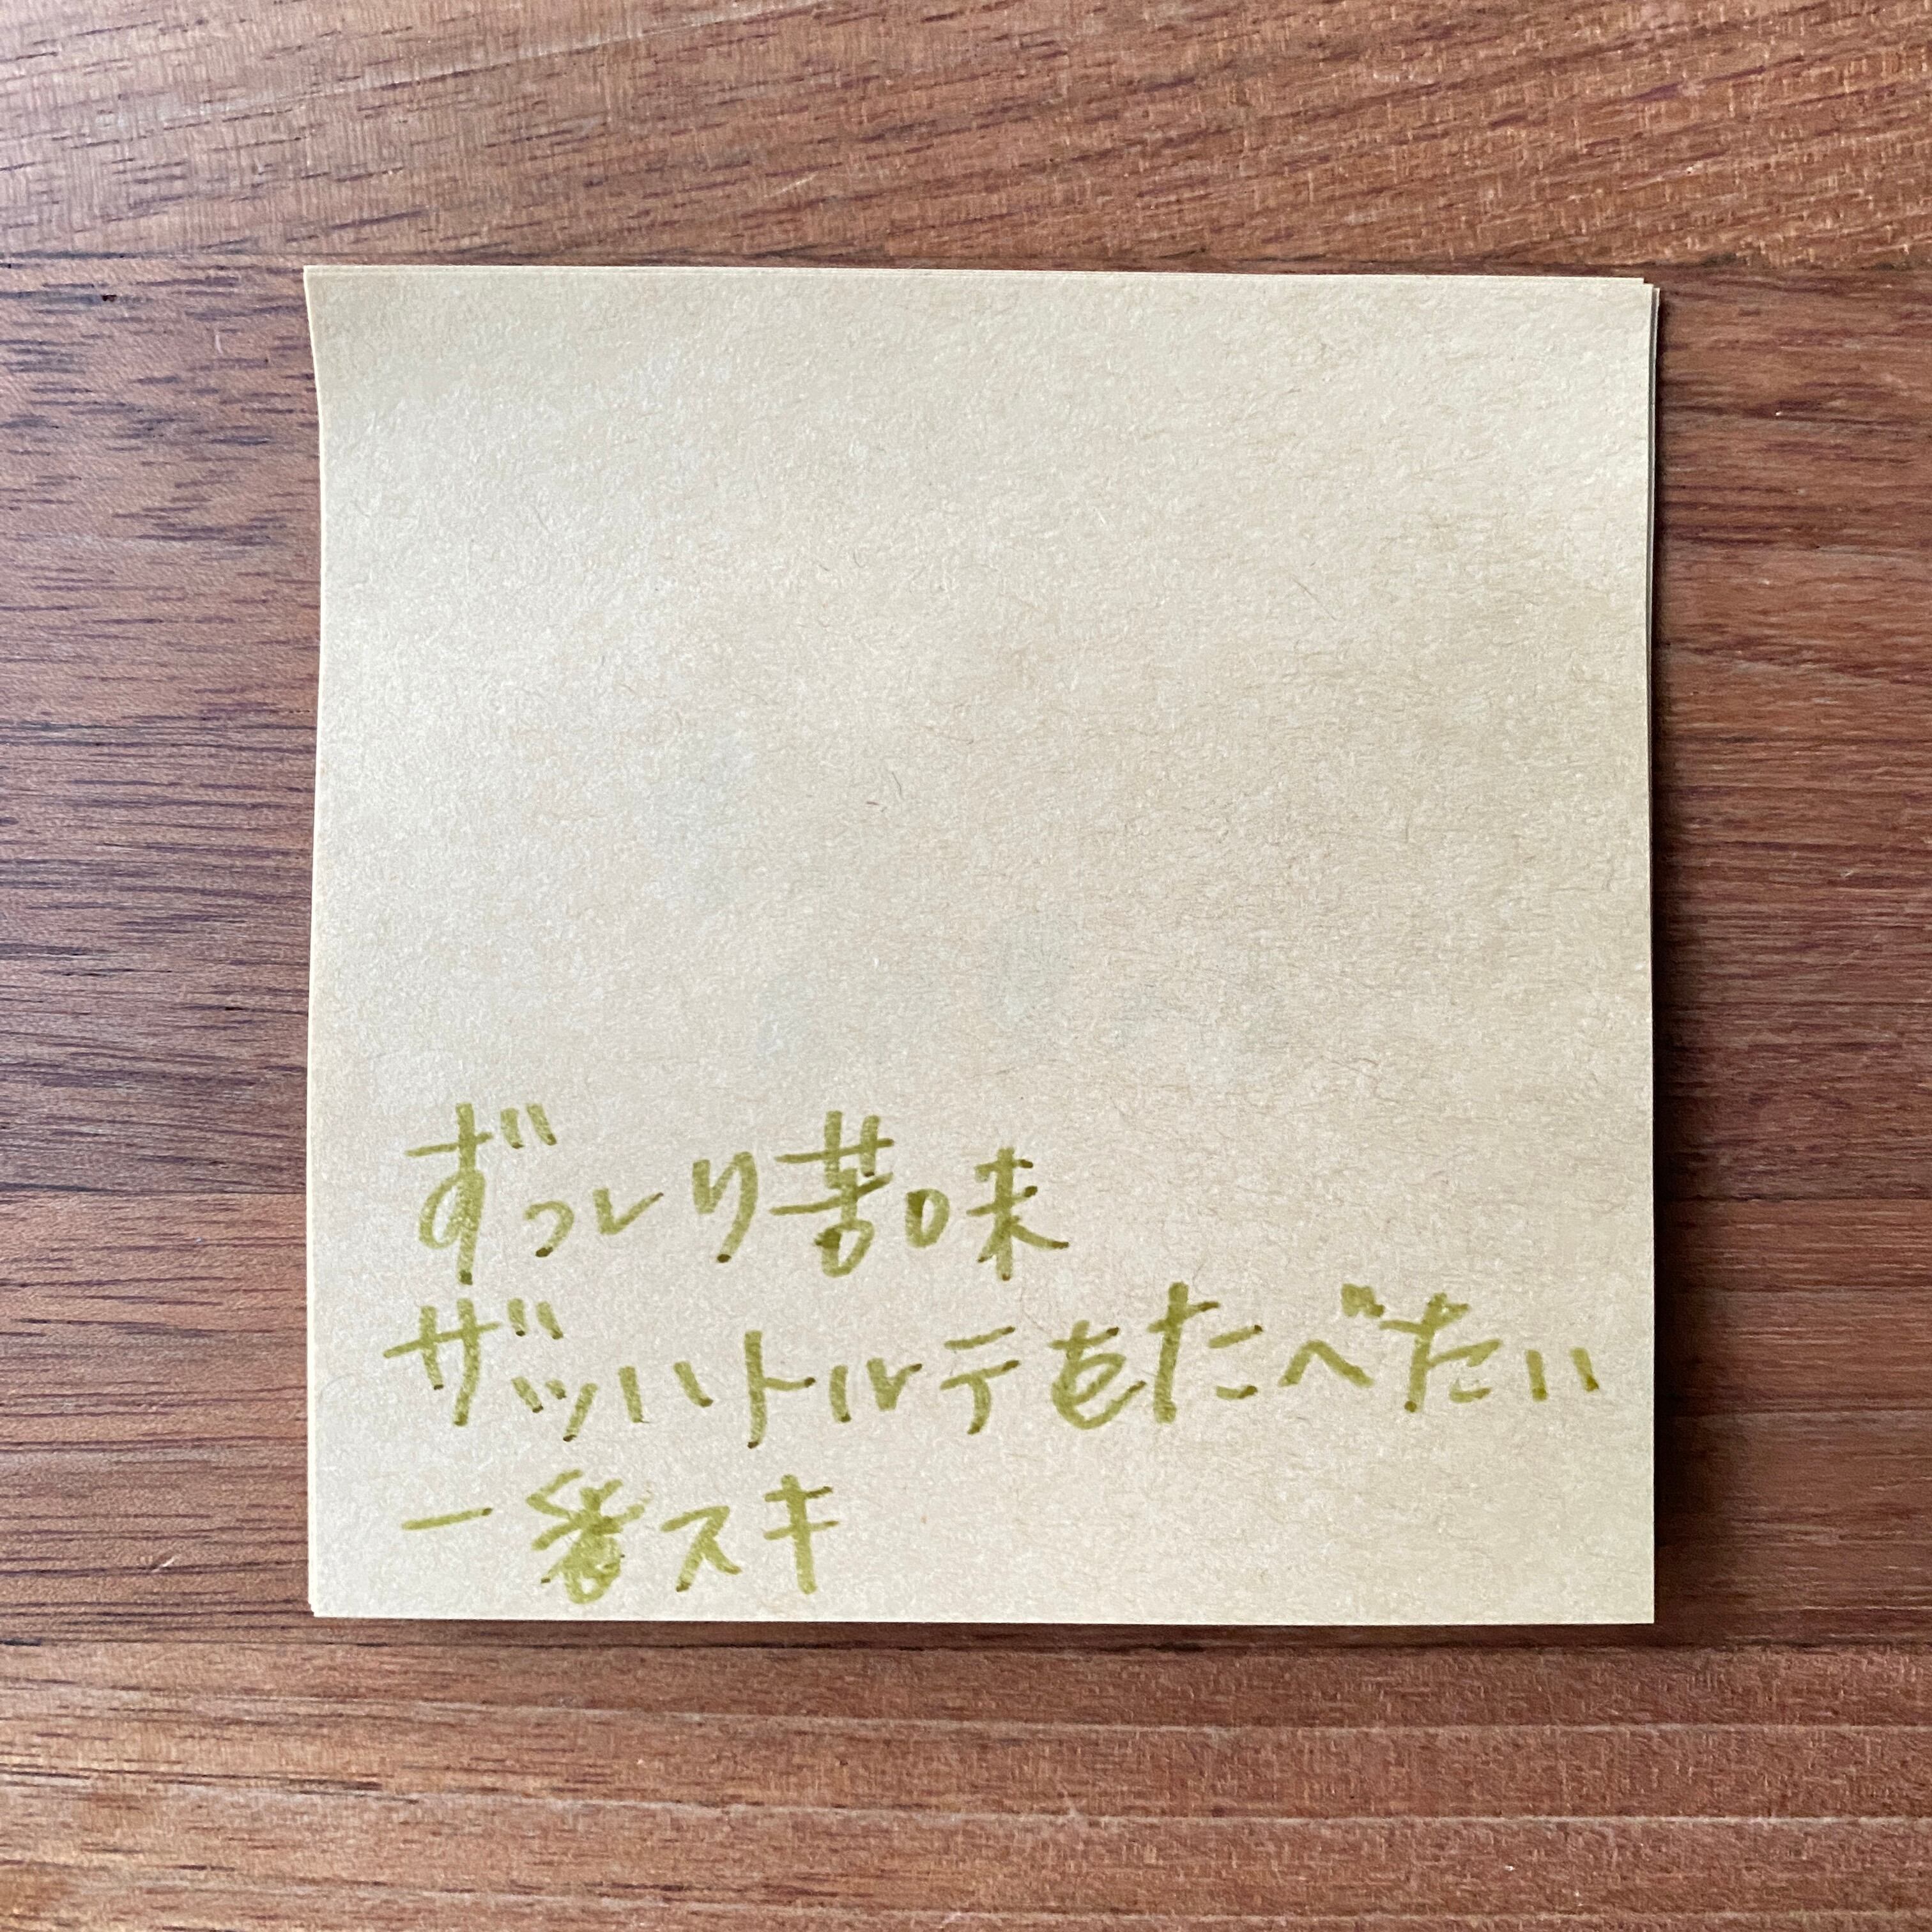 ずっしり苦味
ザッハトルテもたべたい
一番スキ